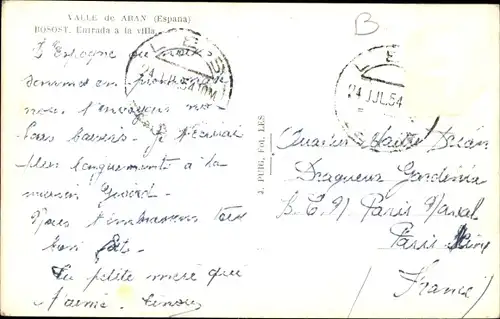 VALLE de ARAN (España)
BOSOST. Entrada a la villa.
B
L'Espagne où nous
sommes en promenade
nous t'envoyons nos
bons baisers. Je t'écrirai
plus longuement à la
maison
Nous t'embrassons tous
bien fort.
Ta petite mère qui
t'aime.
24 JUL 54 10M
24 JUL 54
J. PUIG, Fot. LES
Quartier Maître
Dragueur Gardénia
B.C.N Paris Naval
Paris
(France)